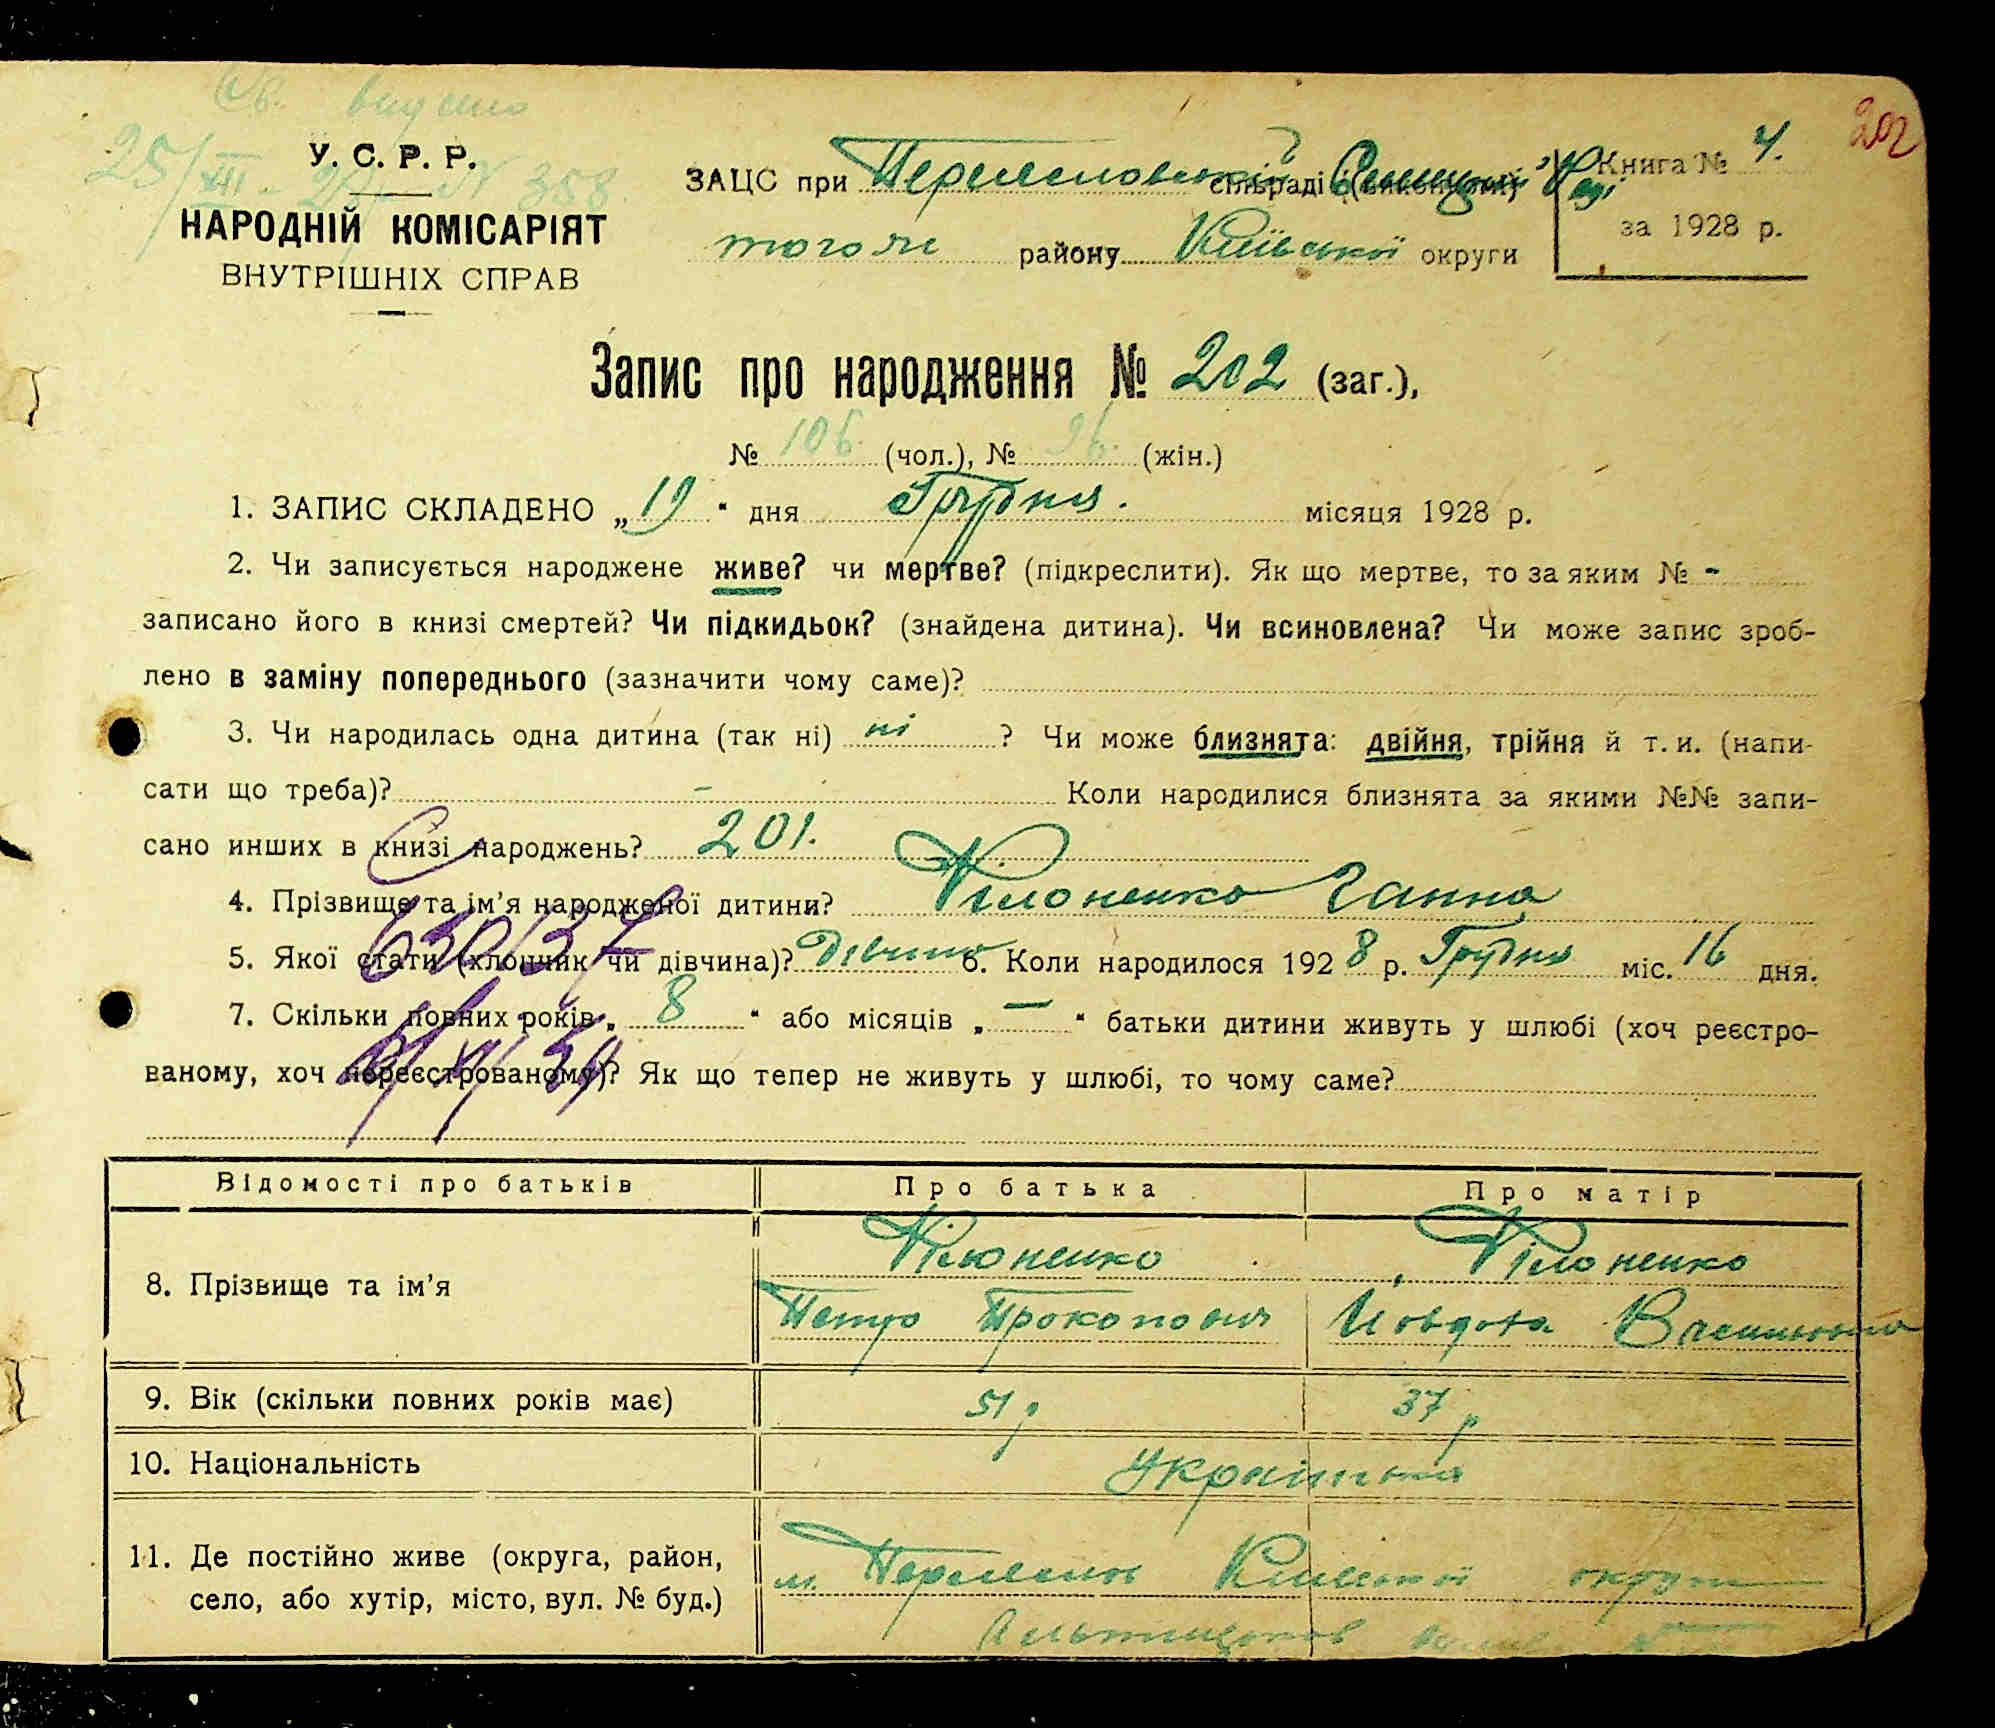 Св. видано
25/XII - 28 р. N 358.
202
У. С. Р. Р.
НАРОДНІЙ КОМІСАРІЯТ
ВНУТРІШНІХ СПРАВ
ЗАЦС при Переяславській сільраді (виконкомі)
того ж району Київської округи
Книга № 4.
за 1928 р.
Запис про народження № 202 (заг.),
№ 106 (чол.), № 96. (жін.)
1. ЗАПИС СКЛАДЕНО „ 19 “ дня Грудня. місяця 1928 р.
2. Чи записується народжене живе? чи мертве? (підкреслити). Як що мертве, то за яким № -
записано його в книзі смертей? Чи підкидьок? (знайдена дитина). Чи всиновлена? Чи може запис зроб-
лено в заміну попереднього (зазначити чому саме)?
3. Чи народилась одна дитина (так ні) ні ? Чи може близнята: двійня, трійня й т. и. (напи-
сати що треба)? - Коли народилися близнята за якими №№ запи-
сано инших в книзі народжень? 201.
4. Прізвище та ім’я народженої дитини? Пілоненко Ганна
5. Якої стати (хлопчик чи дівчина)? Дівчина 6. Коли народилося 1928 р. Грудня міс. 16 дня.
7. Скільки повних років „ 8 “ або місяців „ — “ батьки дитини живуть у шлюбі (хоч реєстро-
ваному, хоч нереєстрованому)? Як що тепер не живуть у шлюбі, то чому саме?
Відомості про батьків Про батька Про матір
8. Прізвище та ім’я Пілоненко Пілоненко
Петро Прокопович Йовдоха Василівна
9. Вік (скільки повних років має) 51 р 37 р
10. Національність Українська
11. Де постійно живе (округа, район, м. Переяслав Київської округи
село, або хутір, місто, вул. № буд.)